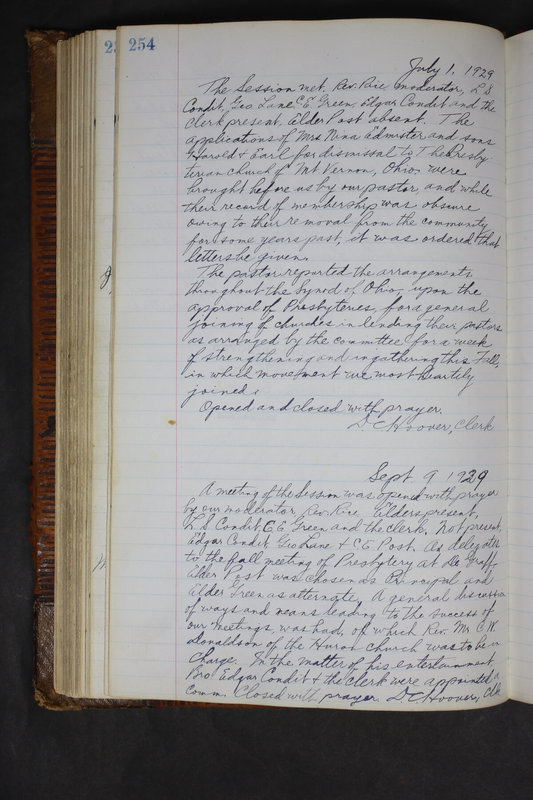 254
July 1, 1929
The Session met. Rev. Rice moderator, L S
Condit, Geo Lane, C E Green, Edgar Condit and the
clerk present. Elder Post absent. The
applications of Mrs Nina Edmister and sons
Harold & Earl for dismissal to The Presby
terian church of Mt Vernon, Ohio, were
brought before us by our pastor and while
their record of membership was obscure
owing to their removal from the community
for some years past, it was ordered that
letters be given.
The pastor reported the arrangements
throughout the Synod of Ohio, upon the
approval of Presbyteries, for a general
joining of churches in lending their pastors
as arranged by the committee for a week
of strengthening and ingathering this Fall,
in which movement we most heartily
joined.
Opened and closed with prayer.
D C Hoover, Clerk
Sept 9 1929
A meeting of the Session was opened with prayer
by our moderator Rev. Rice. Elders present,
L S Condit C E Green and the clerk. Not present,
Edgar Condit Geo Lane & C E Post. As delegate
to the fall meeting of Presbytery at De Graff,
Elder Post was chosen as Principal and
Elder Green as alternate. A general discussion
of ways and means leading to the success of
our meetings was had, of which Rev. Mr. C. W.
Donaldson of the Huron church was to be in
charge. In the matter of his entertainment
Bro Edgar Condit & the clerk were appointed a
comm. Closed with prayer. D. C Hoover, Clk